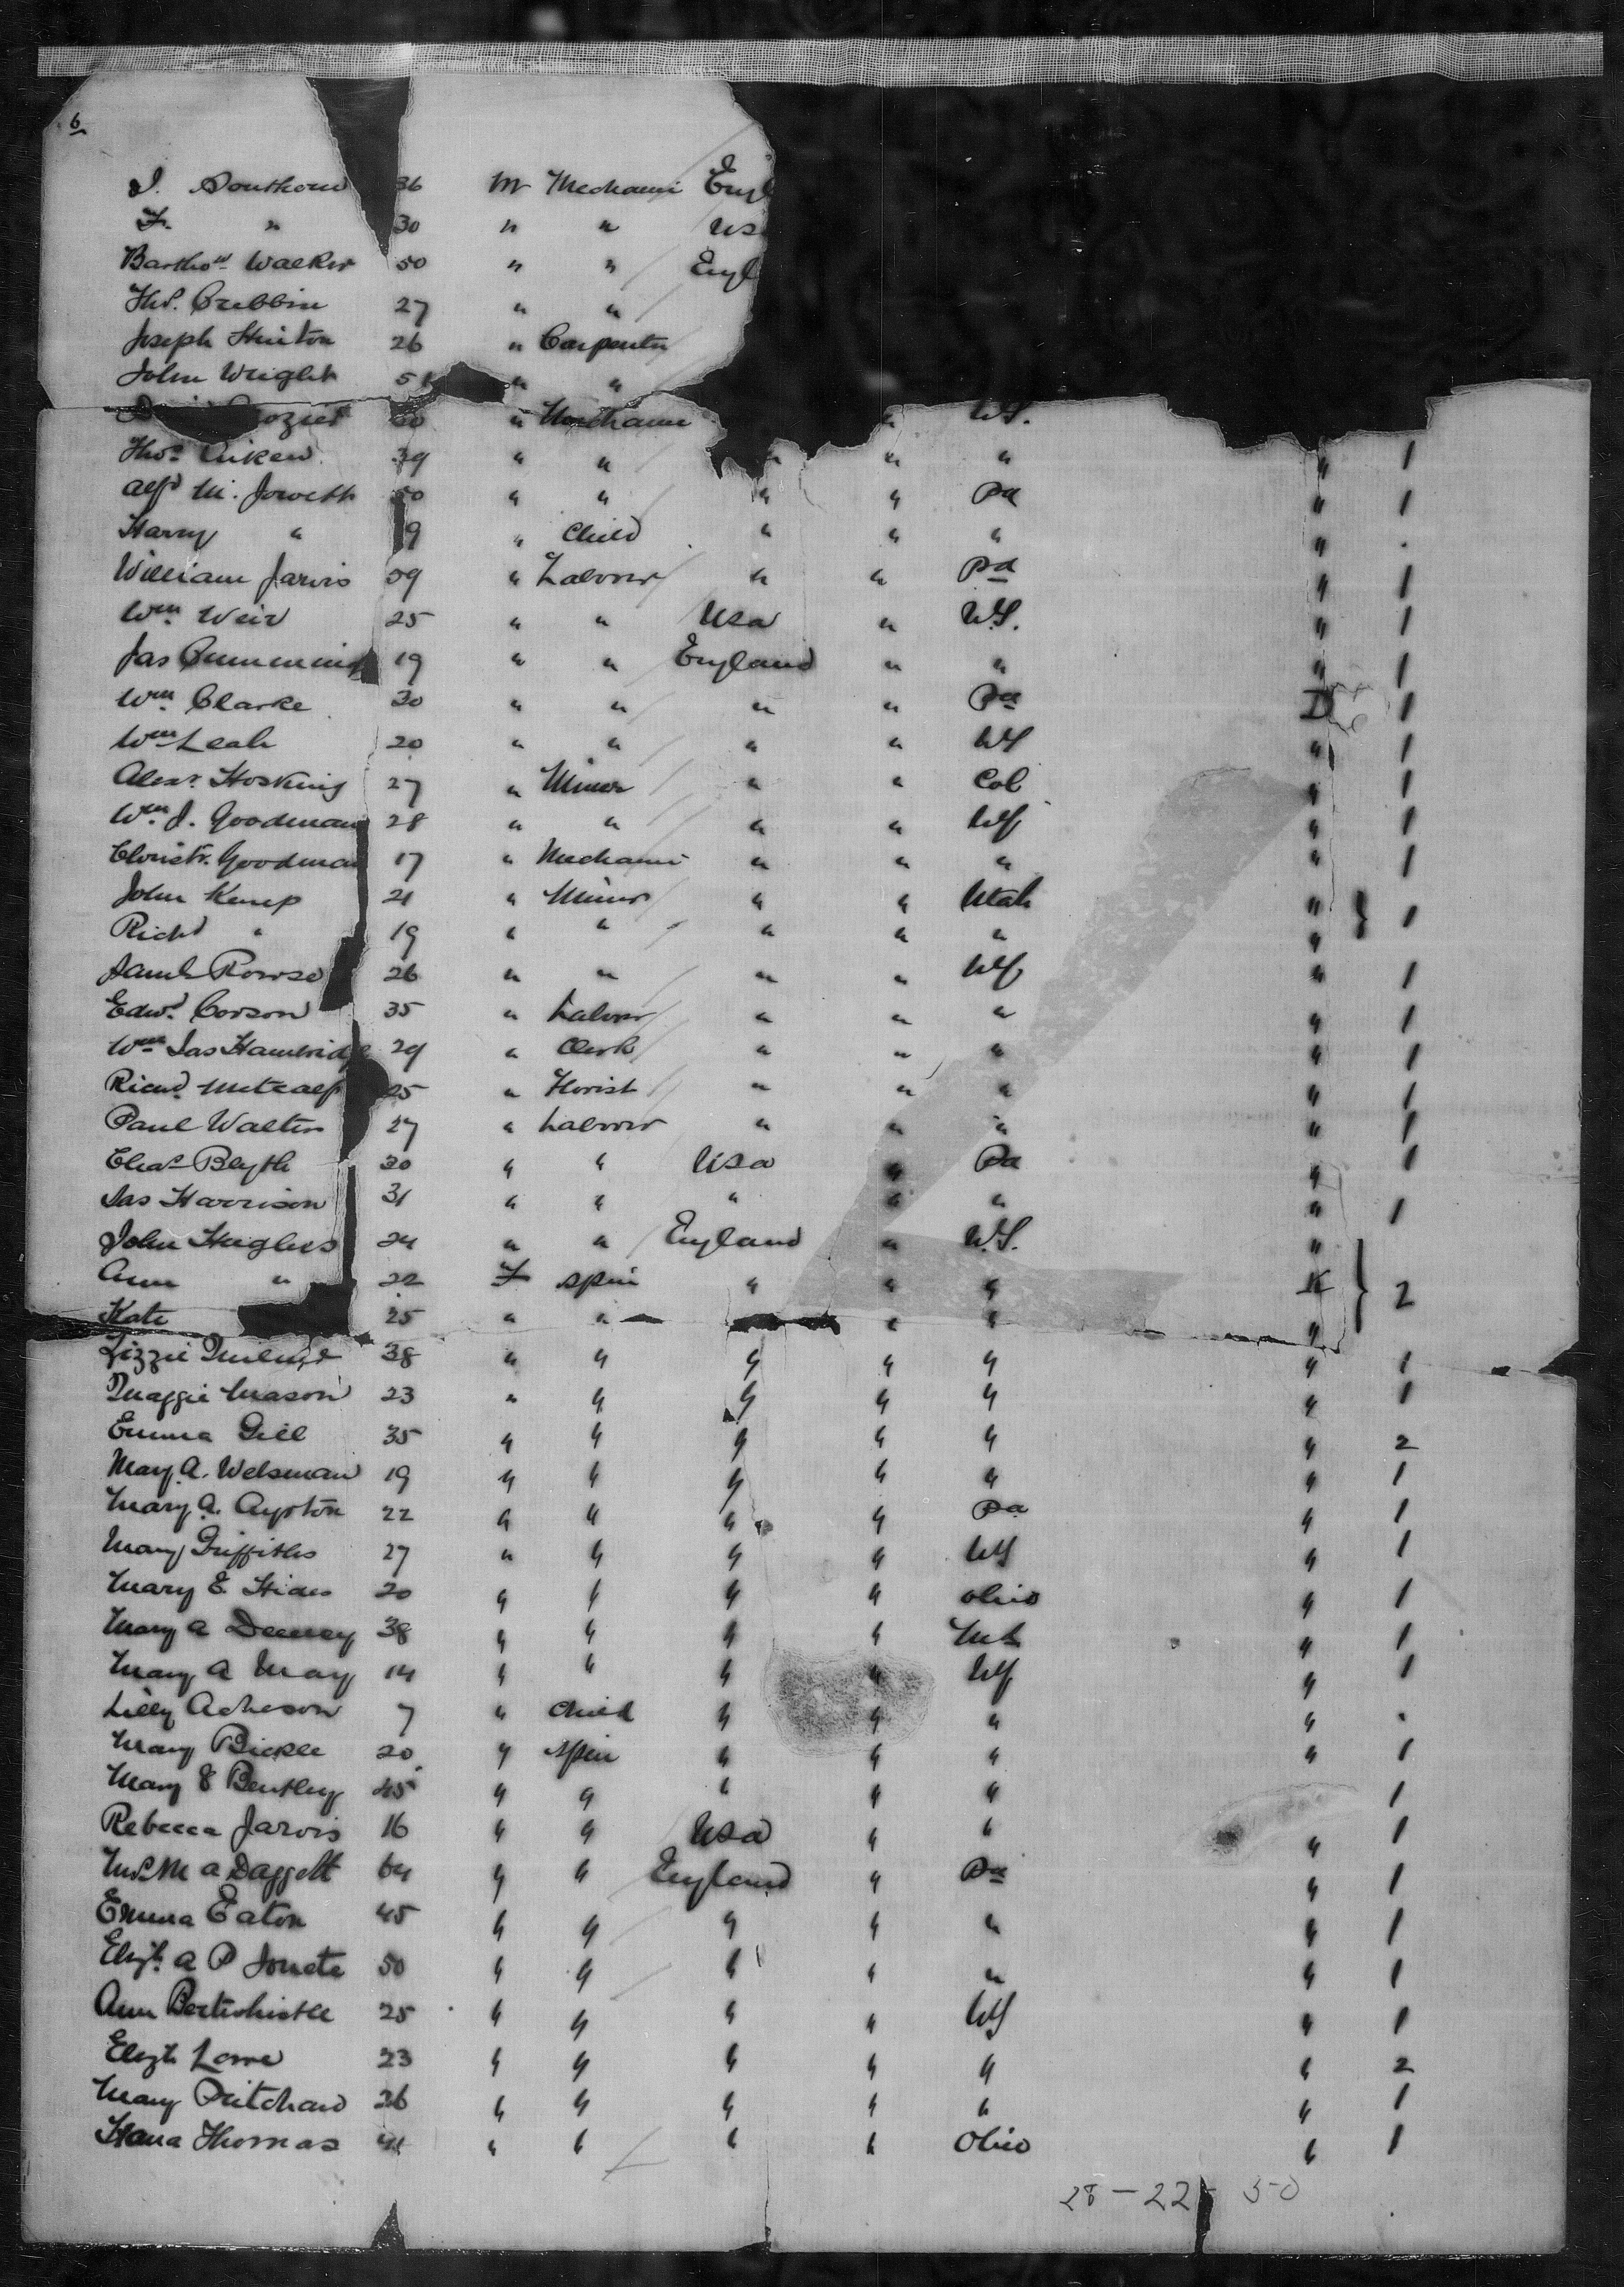 6
J. Southern 36 M Mechanic Engl
F. " 30 " " Us
Bartho^w Walker 50 " " Engl
Tho^s. Cribbin 27 " "
Joseph Hinton 26 " Carpenter
John Wright 5 " "
ozier 30 " Mechanic " NY.
Tho^s Aiken 39 " " " " " " 1
Alf^d M. Jowett 50 " " " " Pa " 1
Harry " 9 " Child " " " " .
William Jarvis 59 " Laborer " " Pa " 1
W^m Weir 25 " " Usa " NY. " 1
Jas Cummings 19 " " England " " " 1
W^m Clarke 30 " " " " Pa D 1
W^m Leah 20 " " " " NY " 1
Alex^r. Hosking 27 " Miner " " Col " 1
W^m. J. Goodman 28 " " " " NY " 1
Christr. Goodman 17 " Mechanic " " " " 1
John Kemp 21 " Miner " " Utah " } 1
Rich^d " 19 " " " " " "
Saml Rowse 26 " " " " NY " 1
Edw^d. Corson 35 " Laborer " " " " 1
W^m Jas Hambridge 29 " Clerk " " " " 1
Ricd. Metcalf 25 " Florist " " " " 1
Paul Walton 27 " Laborer " " " " 1
Cha^s Blyth 30 " " Usa " Pa " 1
Jas Harrison 31 " " " " " " 1
John Hughes 24 " " England " NY. "
Ann " 22 F Spin " " " K } 2
Kate 25 " " " " "
Lizzie 38 " " " " " " 1
Maggie Mason 23 " " " " " " 1
Emma Gill 35 " " " " " " 2
Mary A. Welsman 19 " " " " " " 1
Mary A. Ayrton 22 " " " " Pa " 1
Mary Griffiths 27 " " " " NY " 1
Mary E. Hides 20 " " " " Ohio " 1
Mary A 38 " " " " " 1
Mary A May 14 " " " " NY " 1
Lilly Acheson 7 " Child " " " " .
Mary Bickle 20 " Spin " " " " 1
Mary E Bentley 45 " " " " " 1
Rebecca Jarvis 16 " " Usa " " " 1
Mrs M A Daggett 64 " " England " Pa " 1
Emma Eaton 45 " " " " " " 1
Elizt. A P 50 " " " " " " 1
Ann Bertwhistle 25 " " " " NY " 1
Elizt Lowe 23 " " " " " " 2
Mary Pritchard 26 " " " " " " 1
Hana Thomas 41 " " " " Ohio " 1
28 - 22 - 50